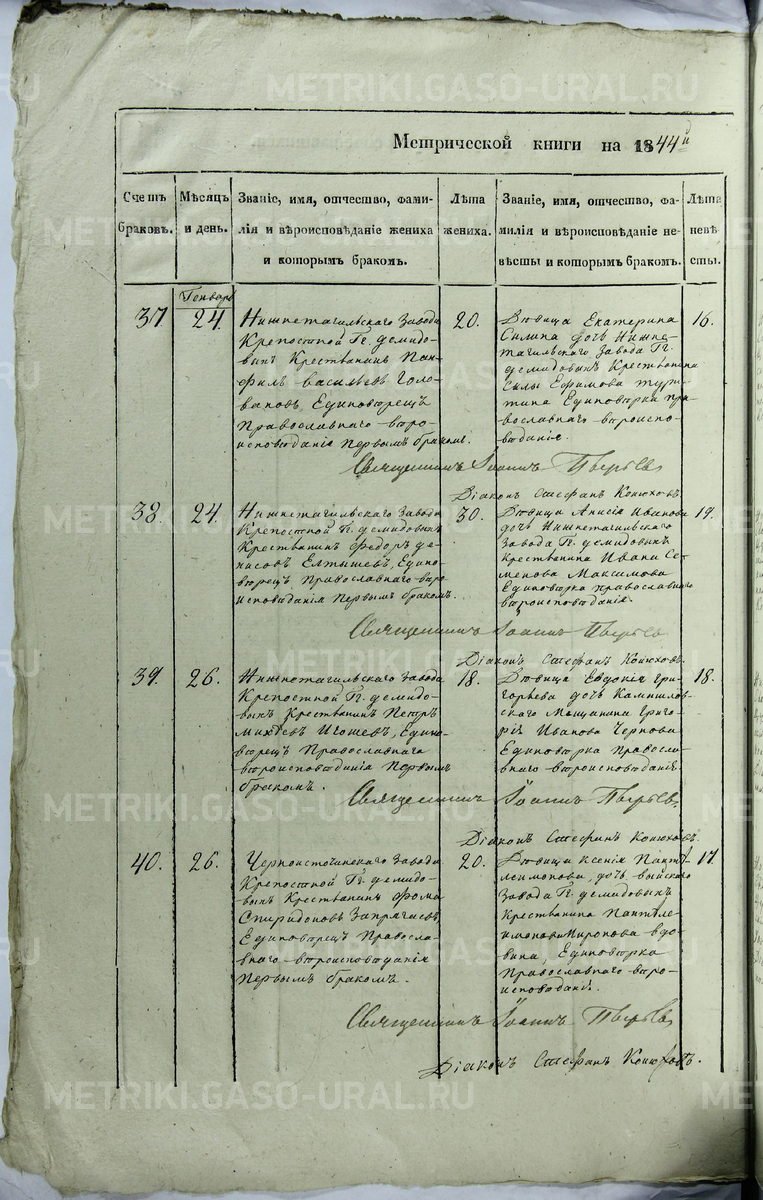 Метрической книги на 1844й
Счетъ браковъ.
Мѣсяцъ и день.
Званіе, имя, отчество, фами-
лія и вѣроисповѣданіе жениха
и которымъ бракомъ.
Лѣта жениха.
Званіе, имя, отчество, фа-
милія и вѣроисповѣданіе не-
вѣсты и которымъ бракомъ.
Лѣта невѣ-
сты.
Генварь
37.
24.
Нижнетагильскаго Завода
Крепостной Гг. демидо-
выхъ Крестьянинъ Пан-
филъ васильевъ Голо-
вановъ, Единоверецъ
Православнаго веро-
исповѣданія первымъ бракомъ.
20.
Девица Екатерина
Силина дочь Нижне-
тагильскаго Завода Гг.
демидовыхъ Крестьянина
Силы Ефимова
Единоверка пра-
вославнаго вероиспо-
веданіе.
16.
Священникъ Іоаннъ
Діаконъ Стефанъ Конюховъ
38.
24.
Нижнетагильскаго Завода
Крепостной Гг. демидовыхъ
Крестьянинъ федоръ де-
нисовъ Елтышевъ, Едино-
верецъ Православнаго веро-
исповѣданія первымъ бракомъ.
30.
Девица Анисія Иванова
дочь Нижнетагильскаго
Завода Гг. демидовыхъ
Крестьянина Ивана Се-
менова Максимова
Единоверка православнаго
вероисповеданія.
19.
Священникъ Іоаннъ
Діаконъ Стефанъ Конюховъ
39.
26.
Нижнетагильскаго Завода
Крепостной Гг. демидо-
выхъ Крестьянинъ Петръ
михѣевъ Игошевъ, Едино-
верецъ Православнаго
вероисповѣданія первымъ
бракомъ.
18.
Девица Евдокія Гри-
горьева дочь
скаго Мещанина Григо-
рія Иванова Чернова
Единоверка Правосла-
внаго вероисповеданія.
18.
Священникъ Іоаннъ
Діаконъ Стефанъ Конюховъ
40.
26.
Черноисточинскаго Завода
Крепостной Гг. демидо-
выхъ Крестьянинъ Фома
Спиридоновъ
Единоверецъ Правосла-
внаго вероисповѣданія
Первымъ бракомъ.
20.
Девица Ксенія Панте-
леимонова, дочь выйскаго
Завода Гг. демидовыхъ
Крестьянина Пантеле-
имона вдо-
вина, Единоверка
Православнаго веро-
исповеданія.
17
Священникъ Іоаннъ
Діаконъ Стефанъ Конюховъ.
METRIKI.GASO-URAL.RU